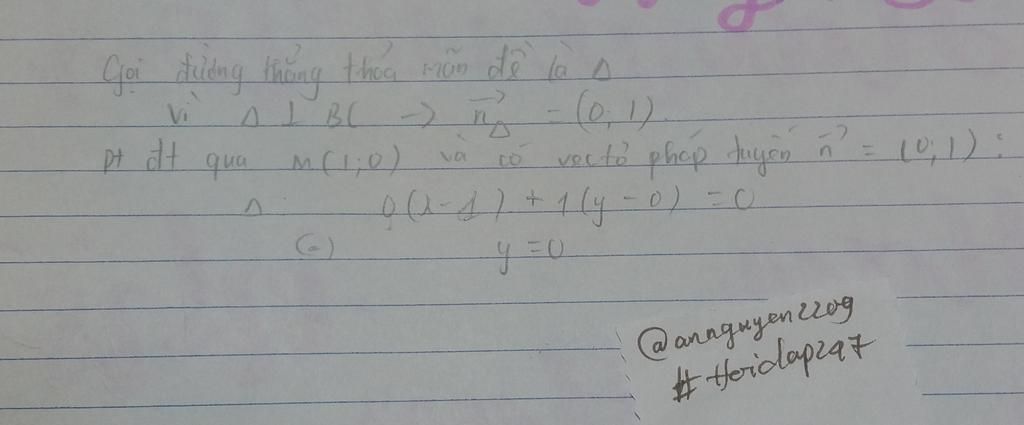 Gọi đường thẳng thỏa mãn đề là Δ
Vì Δ ⊥ BC → n⃗_Δ = (0; 1)
pt đt qua M(1;0) và có vectơ pháp tuyến n⃗ = (0;1):
Δ: 0(x-1) + 1(y-0) = 0
(=) y=0
@annguyen2209
#Hoidap247